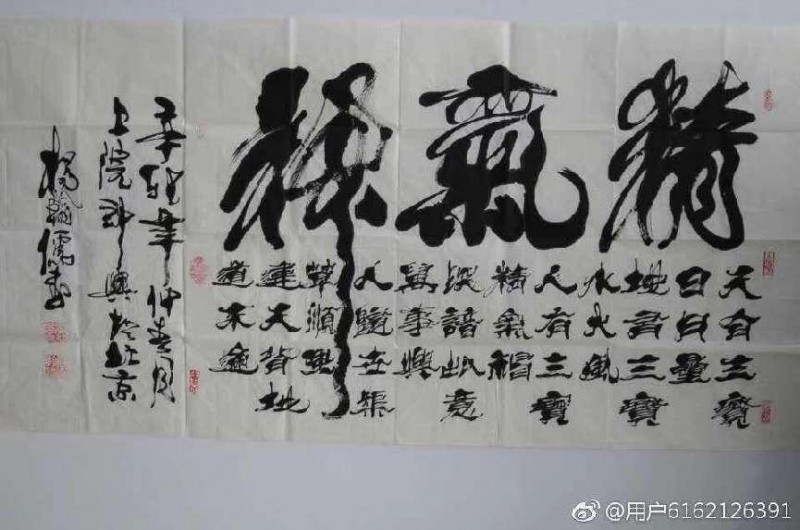 精氣神
天有三寶
日月星
地有三寶
水火風
人有三寶
精氣神
深諳此意
萬事興
人
順
違天背地
道不通
辛卯年仲春月
上院 興於北京
楊 儒書
@用户6162126391